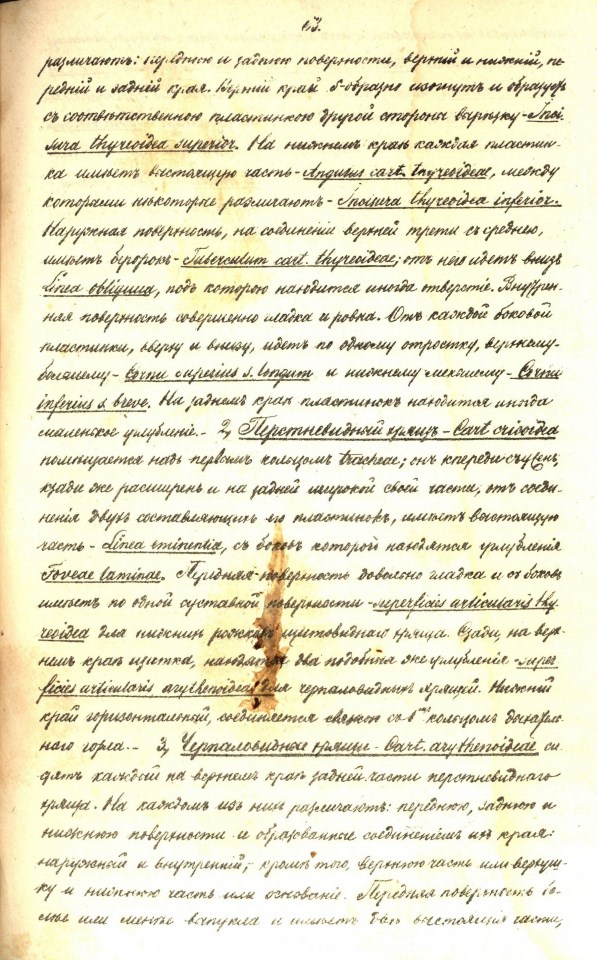 различаютъ: переднюю и заднюю поверхности, верхній и нижній, пе-
редній и задній края. Верхній край S-образно изогнутъ и образуетъ
съ соотвѣтственною пластинкою другой стороны вырѣзку - Inci-
sura thyreoidea superior. На нижнемъ краѣ каждая пластин-
ка имѣетъ выстоящую часть - Angulus cart. thyreoideae, между
которыми нѣкоторые различаютъ - Incisura thyreoidea inferior.
Наружная поверхность, на соединеніи верхней трети съ среднею,
имѣетъ бугорокъ - Tuberculum cart. thyreoideae; отъ него идетъ внизъ
Linea obliqua, подъ которою находится иногда отверстіе. Внутрен-
няя поверхность совершенно гладка и ровна. Отъ каждой боковой
пластинки, вверху и внизу, идетъ по одному отростку, верхнему
большему - Cornu superius s. longum и нижнему меньшему - Cornu
inferius s. breve. На заднемъ краѣ пластинокъ находится иногда
маленькое углубленіе. - 2, Перстневидный хрящъ - Cart cricoidea
помѣщается надъ первымъ кольцомъ tracheae; онъ кпереди съуженъ,
кзади же расширенъ и на задней широкой своей части, отъ соеди-
ненія двухъ составляющихъ его пластинокъ, имѣетъ выстоящую
часть - Linea eminentia, съ боковъ которой находятся углубленія
Foveae laminae. Передняя поверхность довольно гладка и съ боковъ
имѣетъ по одной суставной поверхности - superficies articularis thy-
reoidea для нижнихъ рожковъ щитовиднаго хряща. Сзади, на верх-
немъ краѣ щитка, находятся два подобныя же углубленія - super-
ficies articularis arythenoideae для черпаловидныхъ хрящей. Нижній
край горизонтальный, соединяется связкою съ 1мъ кольцомъ дыхатель-
наго горла. - 3, Черпаловидные хрящи - Cart. arythenoideae си-
дятъ каждый на верхнемъ краѣ задней части перстневиднаго
хряща. На каждомъ изъ нихъ различаютъ: переднюю, заднюю и
нижнюю поверхности и образованные соединеніемъ ихъ края:
наружный и внутренній; кромѣ того, верхнюю часть или верхуш-
ку и нижнюю часть или основаніе. Передняя поверхность бо-
лѣе или менѣе выпукла и имѣетъ двѣ выстоящія части,